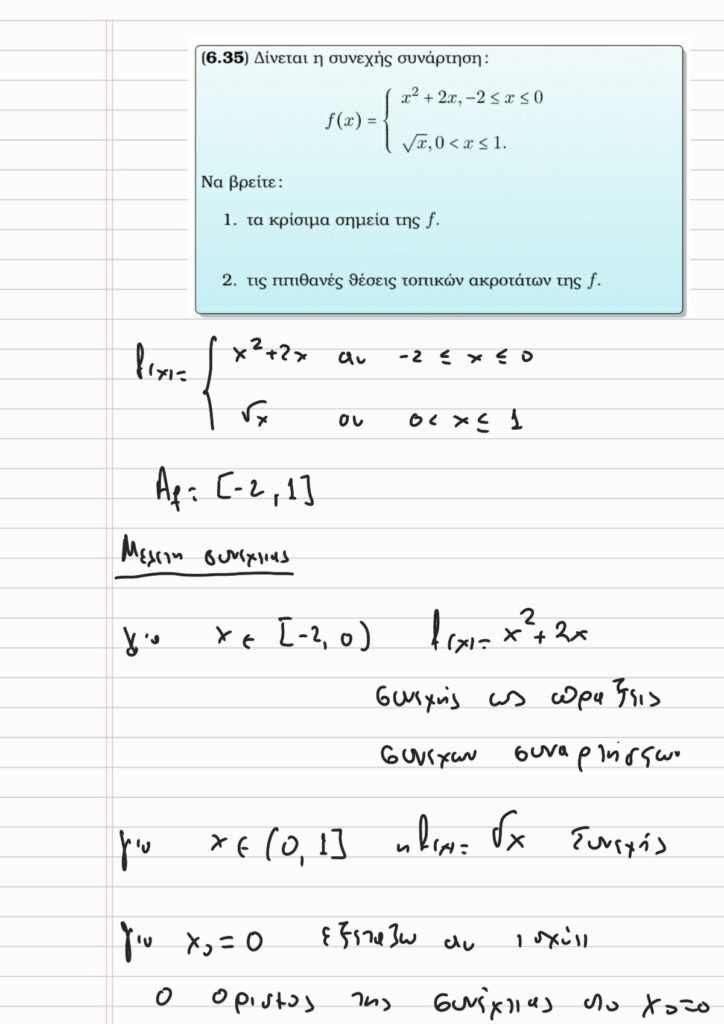 (6.35) Δίνεται η συνεχής συνάρτηση:
f(x) = { x² + 2x, −2 ≤ x ≤ 0
√x, 0 < x ≤ 1.
Να βρείτε:
1. τα κρίσιμα σημεία της f.
2. τις ππιθανές θέσεις τοπικών ακροτάτων της f.
f(x) = { x² + 2x αν -2 ≤ x ≤ 0
√x αν 0 < x ≤ 1
A_f = [-2, 1]
Μελέτη συνέχειας
για x ∈ [-2, 0) f(x) = x² + 2x
συνεχής ως πράξεις
συνεχών συναρτήσεων
για x ∈ (0, 1] η f(x) = √x συνεχής
για x₀ = 0 εξετάζω αν ισχύει
ο ορισμος της συνέχειας στο x₀=0